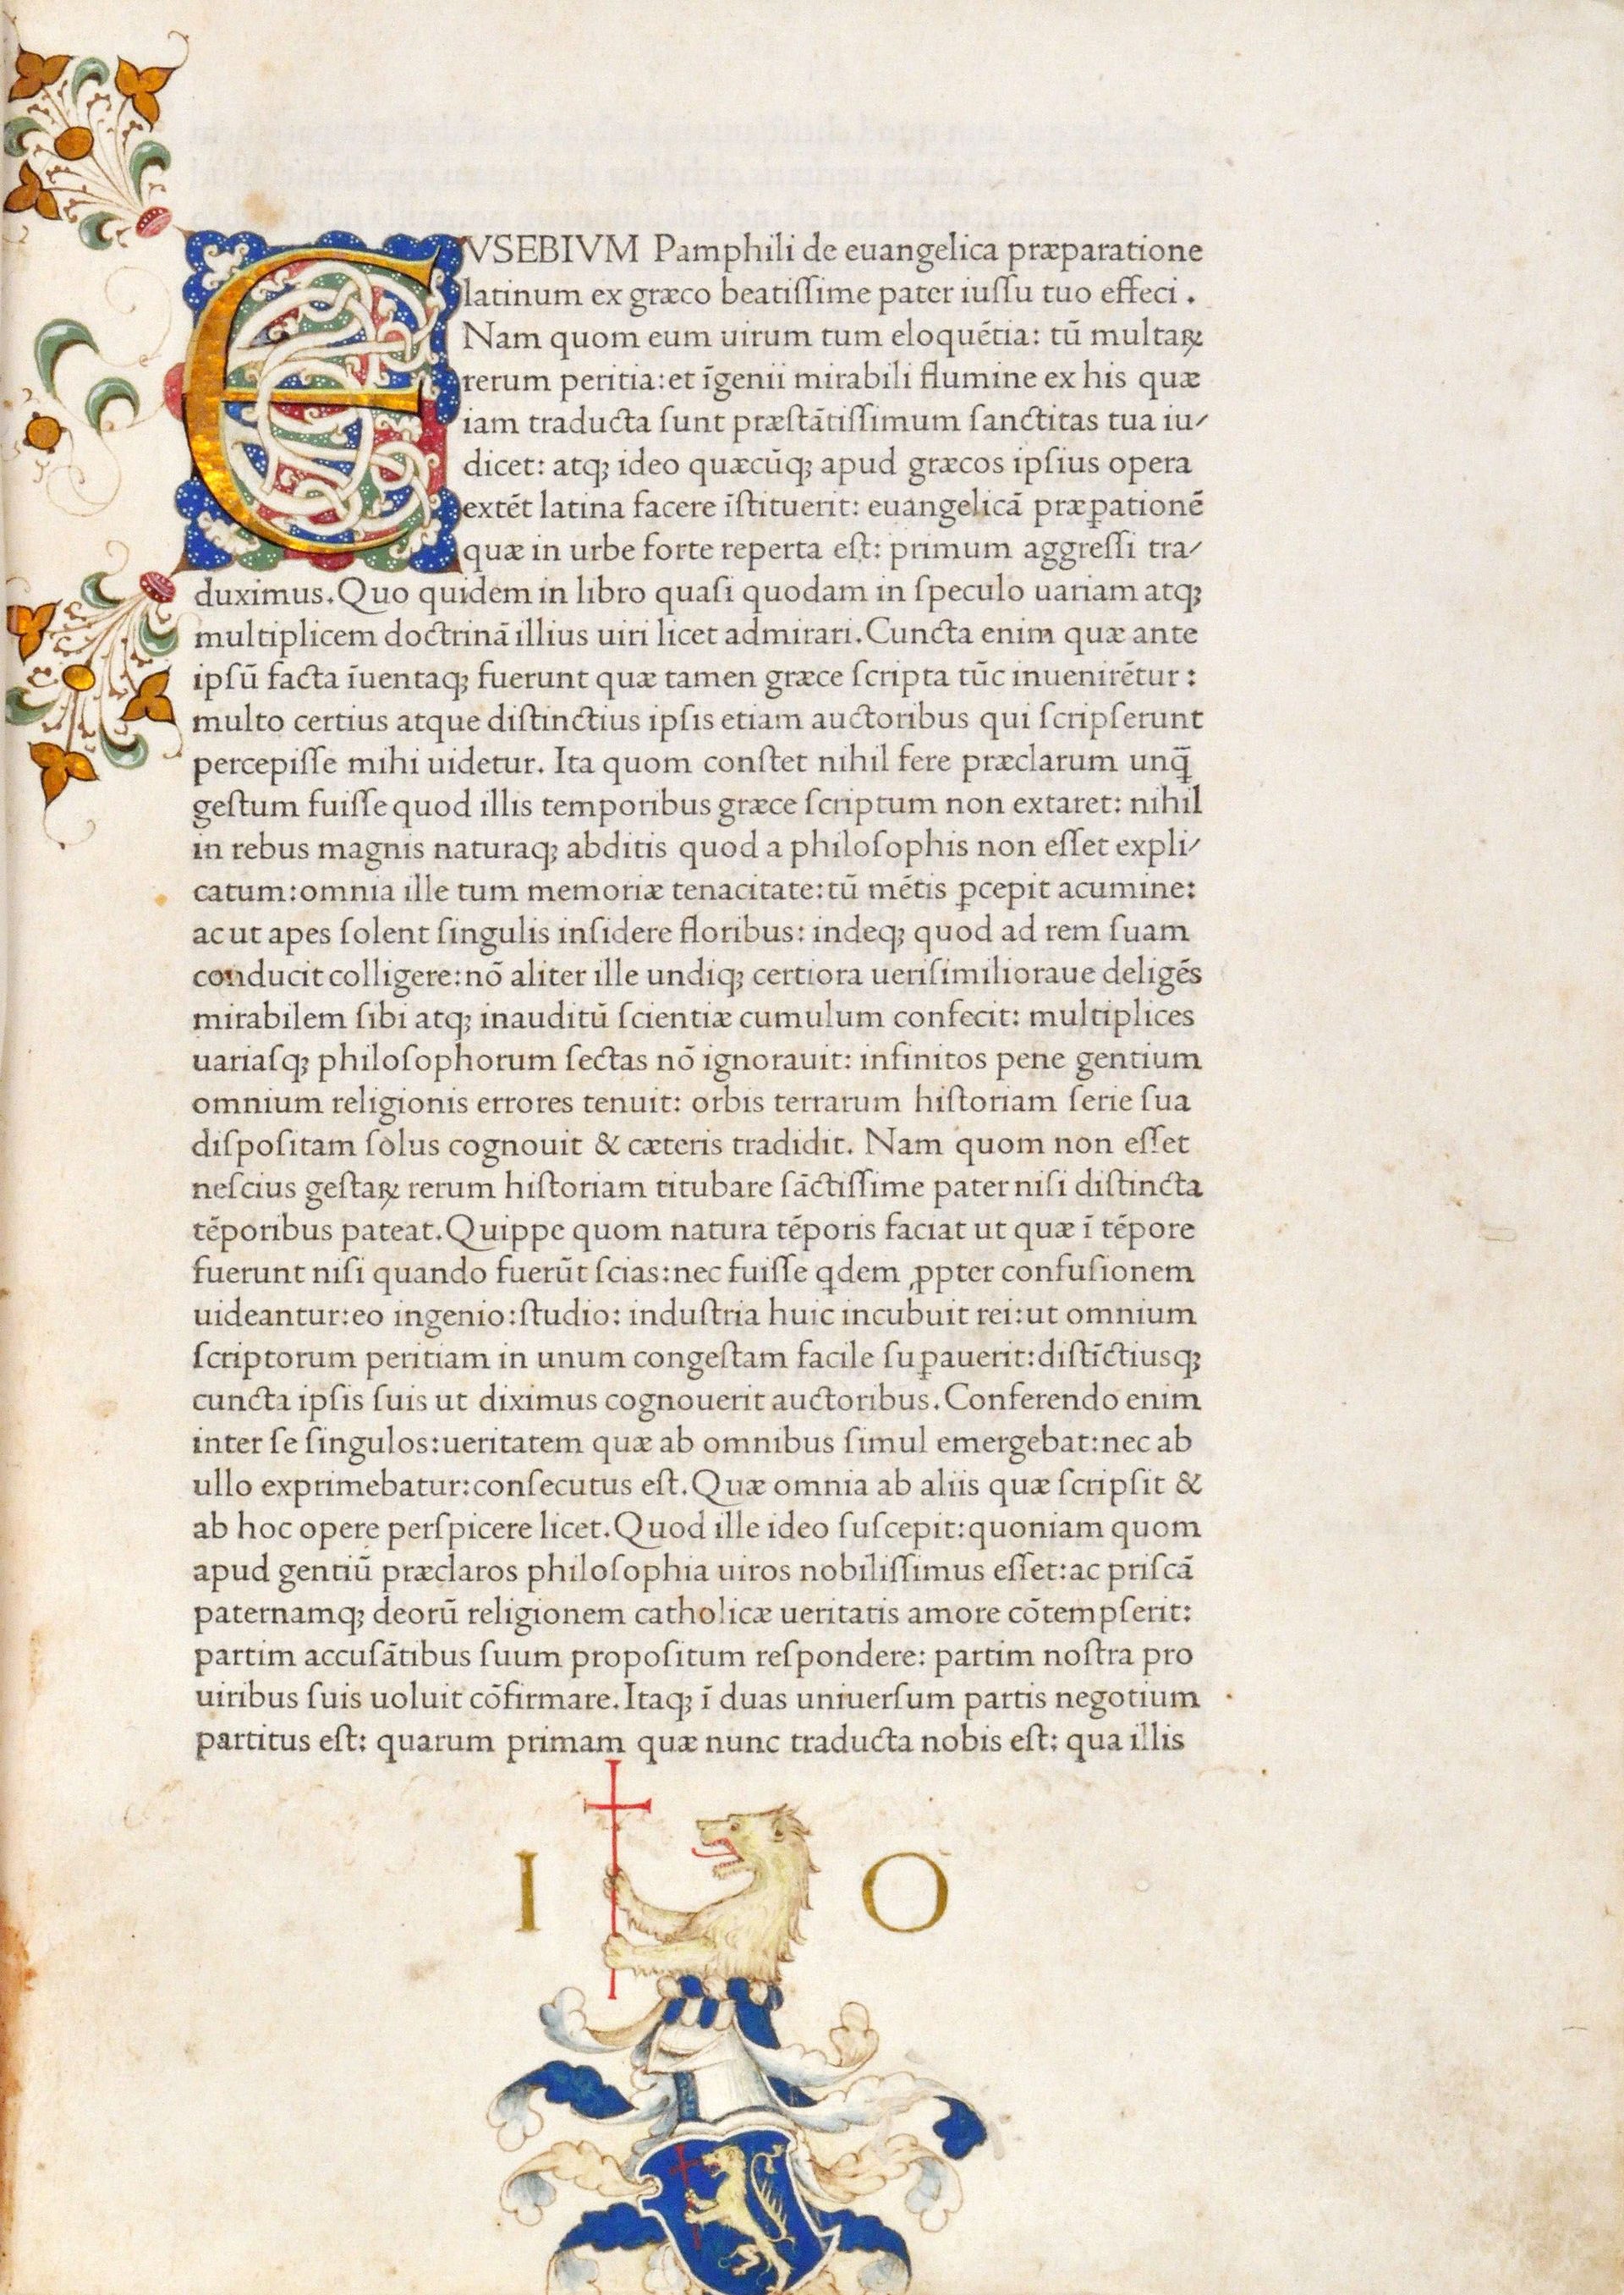 EVSEBIVM Pamphili de euangelica præparatione
latinum ex græco beatiſſime pater iuſſu tuo effeci .
Nam quom eum uirum tum eloquētia: tū multaꝝ
rerum peritia: et īgenii mirabili flumine ex his quæ
iam traducta ſunt præſtātiſſimum ſanctitas tua iu⸗
dicet: atqꝫ ideo quæcūqꝫ apud græcos ipſius opera
extēt latina facere īſtituerit: euangelicā præꝑationē
quæ in urbe forte reperta eſt: primum aggreſſi tra⸗
duximus. Quo quidem in libro quaſi quodam in ſpeculo uariam atqꝫ
multiplicem doctrinā illius uiri licet admirari. Cuncta enim quæ ante
ipſū facta īuentaqꝫ fuerunt quæ tamen græce ſcripta tūc inuenirētur :
multo certius atque diſtinctius ipſis etiam auctoribus qui ſcripſerunt
percepiſſe mihi uidetur. Ita quom conſtet nihil fere præclarum unq̄
geſtum fuiſſe quod illis temporibus græce ſcriptum non extaret: nihil
in rebus magnis naturaqꝫ abditis quod a philoſophis non eſſet expli⸗
catum: omnia ille tum memoriæ tenacitate: tū mētis ꝑcepit acumine:
ac ut apes ſolent ſingulis inſidere floribus: indeqꝫ quod ad rem ſuam
conducit colligere: nō aliter ille undiqꝫ certiora ueriſimilioraue deligēs
mirabilem ſibi atqꝫ inauditū ſcientiæ cumulum confecit: multiplices
uariaſqꝫ philoſophorum ſectas nō ignorauit: infinitos pene gentium
omnium religionis errores tenuit: orbis terrarum hiſtoriam ſerie ſua
diſpoſitam ſolus cognouit & cæteris tradidit. Nam quom non eſſet
neſcius geſtaꝝ rerum hiſtoriam titubare ſāctiſſime pater niſi diſtincta
tēporibus pateat. Quippe quom natura tēporis faciat ut quæ ī tēpore
fuerunt niſi quando fuerūt ſcias: nec fuiſſe ꝗdem ꝓpter confuſionem
uideantur: eo ingenio: ſtudio: induſtria huic incubuit rei: ut omnium
ſcriptorum peritiam in unum congeſtam facile ſuꝑauerit: diſtīctiusqꝫ
cuncta ipſis ſuis ut diximus cognouerit auctoribus. Conferendo enim
inter ſe ſingulos: ueritatem quæ ab omnibus ſimul emergebat: nec ab
ullo exprimebatur: conſecutus eſt. Quæ omnia ab aliis quæ ſcripſit &
ab hoc opere perſpicere licet. Quod ille ideo ſuſcepit: quoniam quom
apud gentiū præclaros philoſophia uiros nobiliſſimus eſſet: ac priſcā
paternamqꝫ deorū religionem catholicæ ueritatis amore cōtempſerit:
partim accuſātibus ſuum propoſitum reſpondere: partim noſtra pro
uiribus ſuis uoluit cōfirmare. Itaqꝫ ī duas uniuerſum partis negotium
partitus eſt: quarum primam quæ nunc traducta nobis eſt: qua illis
I O